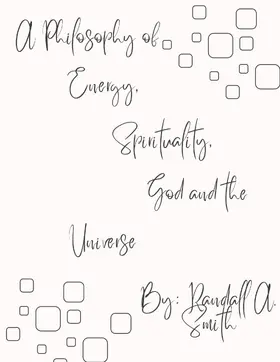 A Philosophy of
Energy,
Spirituality,
God and the
Universe
By: Randall A.
Smith